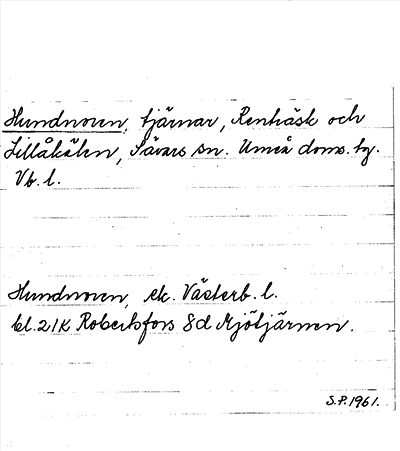 Hundnoren, tjärnar, Renträsk och
Lillåkälen, Sävars sn. Umeå doms. tg.
Vb. l.
Hundnoren, ek. Västerb. l.
bl. 21K Robertsfors 8d Mjötjärnen.
S.P. 1961.